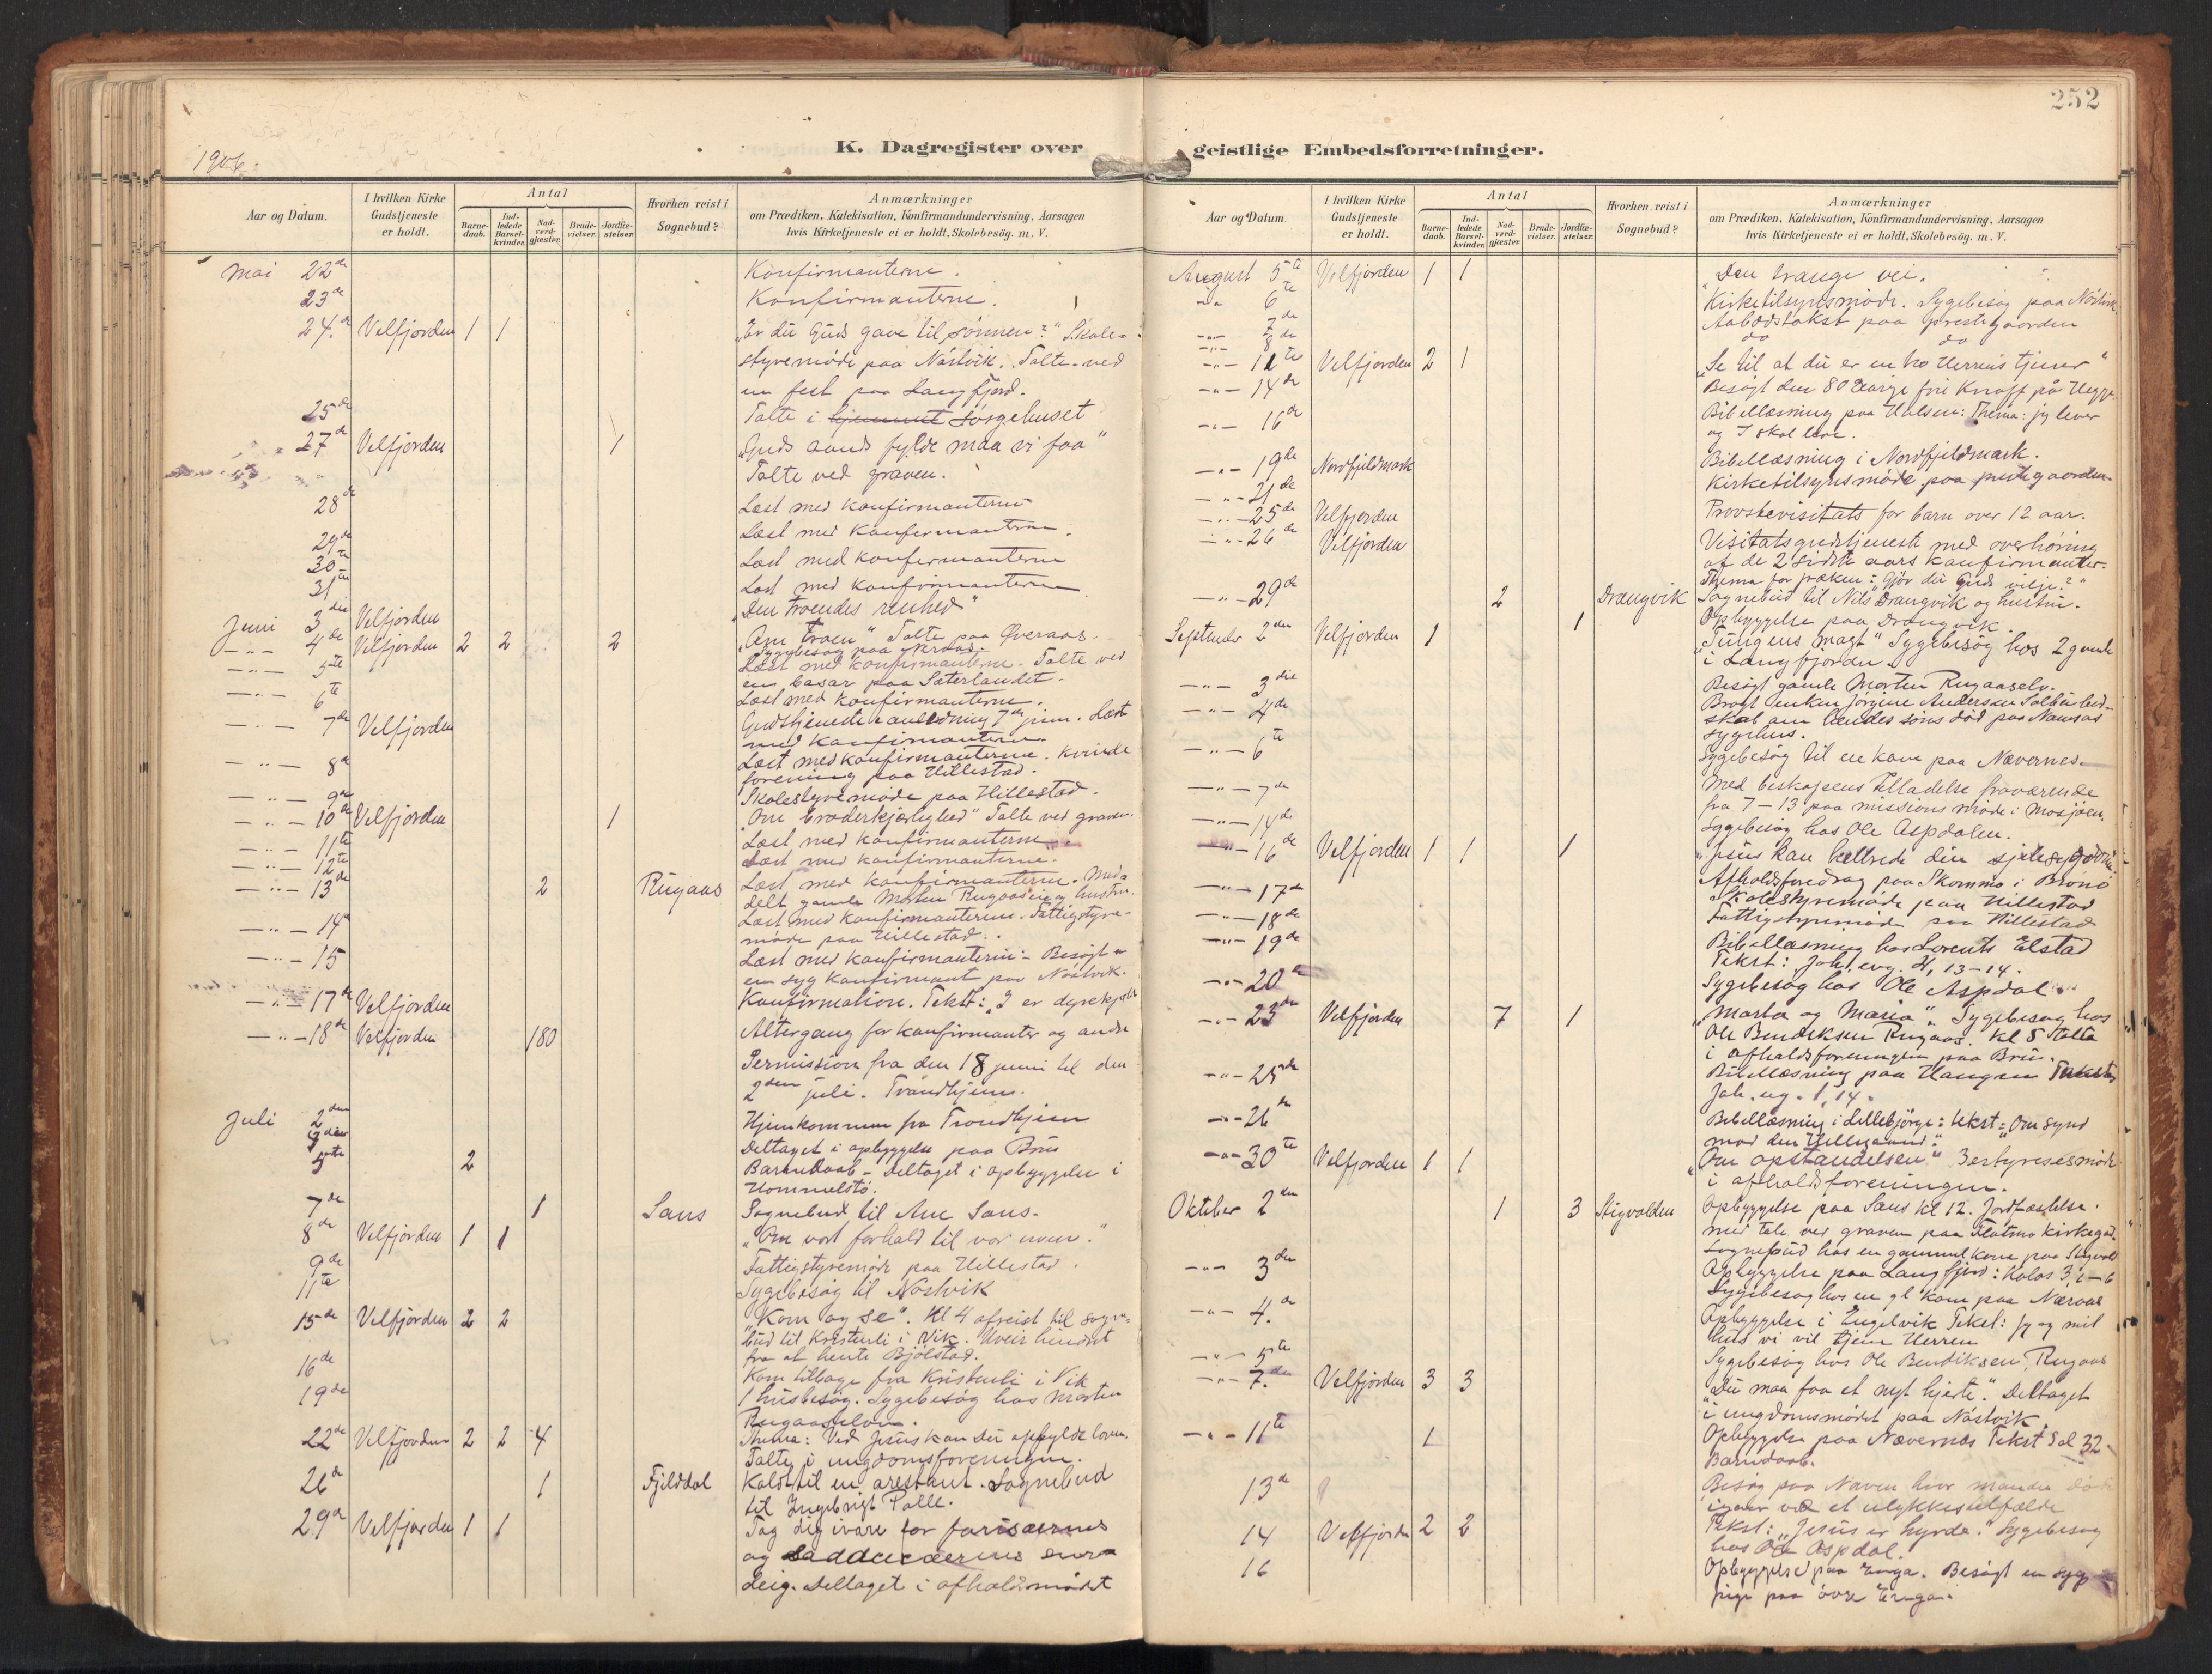 252
K. Dagregister over geistlige Embedsforretninger.
1906.
Aar og Datum.
I hvilken Kirke Gudstjeneste er holdt.
Antal
Barnedaab.
Indledede Barselkvinder.
Nadverdgjester
Brudevielser.
Jordfæstelser.
Hvorhen reist i Sognebud?
Anmærkninger
om Prædiken, Katekisation, Konfirmandundervisning, Aarsagen
hvis Kirketjeneste ei er holdt, Skolebesög. m. V.
Mai 22de Konfirmanterne.
23de Konfirmanterne.
24de Velfjorden 1 1 "Er du Guds gave til sønnen?" Skole-
styremöde paa Nöstvik. Talte ved
en fest paa Langfjord.
25de Talte i hjemmet sørgehuset
27de Velfjorden 1 "Guds aands fylde maa vi faa"
Talte ved graven.
28de Læst med konfirmanterne
29de Læst med konfirmanterne.
30te Læst med konfirmanterne
31te Læst med konfirmanterne
Juni 3die Velfjorden "Den troendes renhed"
4de Velfjorden 2 2 2 "Om troen" Talte paa Øveraas.
Sygebesøg paa
5te Læst med konfirmanterne. Talte ved
en basar paa Sæterlandet.
6te Læst med konfirmanterne.
7de Velfjorden Gudstjeneste i anledning 7de juni. Læst
med konfirmanterne.
8de Læst med konfirmanterne. Kvinde
forening paa Hillestad.
9de Skolestyremöde paa Hillestad.
10de Velfjorden 1 "Om broderkjærlighed" Talte ved graven.
11te Læst med konfirmanterne
12te Læst med konfirmanterne.
13de 2 Rugaas Læst med konfirmanterne. Med-
delt gamle Morten Rugaaselv og hustru.
14de Læst med konfirmanterne. Fattigstyre-
möde paa Hillestad.
15 Læst med konfirmanterne. Besøgt
en syg konfirmant paa Nöstvik.
17de Velfjorden Konfirmation. Tekst: "I er dyrekjøbt
18de Velfjorden 180 Altergang for konfirmanter og andre
Permission fra den 18 juni til den
2den juli. Trondhjem.
Juli 2den Hjemkommen fra Trondhjem
3die Deltaget i opbyggelse paa Brus
5te 2 Barnedaab - Deltaget i opbyggelse i
Hommelstö.
7de 1 Saus Sognebud til Ane Saus.
8de Velfjorden 1 1 "Om vort forhold til vor uven."
9de Fattigstyremöde paa Hillestad.
11te Sygebesøg til Nöstvik
15de Velfjorden 2 2 "Kom og se". Kl 4 afreist til sogne-
bud til Kristenli i Vik. Uveir hindret
fra at hente Bjölstad.
16de Kom tilbage fra Kristenli i Vik
19de 1 husbesøg. Sygebesøg hos Morten
Rugaaselven.
22de Velfjorden 2 2 4 Thema: Ved Jesus kan du opfylde loven.
Talte i ungdomsforeningen.
26de 1 Fjelddal Kaldt til en arrestant. Sognebud
til Ingebrigt Palle.
29de Velfjorden 1 1 Tag dig ivare for farisæernes
og sadducæernes sur-
deig. Deltaget i afholdsmödet
August 5te Velfjorden 1 1 "Den trange vei."
6te Kirketilsynsmöde. Sygebesøg paa Nöstvik.
7de Aabodstakst paa prestegaarden
8de do do
12te Velfjorden 2 1 "Se til at du er en tro Herrens tjener"
14de Besøgt den 80 aarge fru Knoff på Hegge.
16de Bibellæsning paa Hulsen: Thema: jeg lever
og I skal leve.
19de Nordfjeldmark Bibellæsning i Nordfjeldmark.
21de Kirketilsynsmöde paa prestegaarden.
25de Velfjorden Provstevisitats for barn over 12 aar.
26de Velfjorden Visitatsgudstjeneste med overhøring
af de 2 sidste aars konfirmanter.
Thema for præken: "Gjör du Guds vilje?"
29de 2 Drangvik Sognebud til Nils Drangvik og hustru.
Opbyggelse paa Drangvik.
September 2den Velfjorden 1 1 "Tungens magt" Sygebesøg hos 2 gamle
i Langfjorden.
3die Besøgt gamle Morten Rugaaselv.
4de Bragt enken Jørgine Andersen Solbu bud-
skab om hendes søns død paa Namsos
sygehus.
6te Sygebesøg til en kone paa Nævernes.
7de Med biskopens tilladelse fraværende
fra 7-13 paa missionsmöde i Mosjøen.
14de Sygebesøg hos Ole Aspdalen.
16de Velfjorden 1 1 1 "Jesus kan helbrede din sjelesygdom
17de Afholdsforedrag paa Skommo i Brönö
Skolestyremöde paa Hillestad
18de Fattigstyremöde paa Hillestad
19de Bibellæsning hos Lorents Elstad
Tekst: Joh. evg. 4, 13-14.
20de Sygebesøg hos Ole Aspdal.
23de Velfjorden 7 1 "Marta og Maria". Sygebesøg hos
Ole Bendiksen Rugaas. Kl 5 talte
i afholdsforeningen paa Brus.
25de Bibellæsning paa Haugen Tekst:
Joh. evg. 1, 14.
26de Bibellæsning i Lillebjörge: tekst: "Om synd
mod den Helligaand".
30te Velfjorden 1 1 "Om opstandelsen" Bestyrelsesmöde
i afholdsforeningen.
Oktober 2den 1 3 Stigvolden Opbyggelse paa Saus Kl 12. Jordfæstelse.
med tale ved graven paa Flatmo kirkegd.
Sognebud hos en gammel kone paa Stigvold
3die Opbyggelse paa Langfjord: Kolos 3, 1-6
4de Sygebesøg hos en gl kone paa Nærvas
Opbyggelse i Engelvik Tekst: Jeg og mit
hus vi vil tjene Herren
5te Sygebesøg hos Ole Bendiksen, Rugaas
7de Velfjorden 3 3 "Du maa faa et nyt hjerte." Deltaget
i ungdomsmødet paa Nöstvik.
11te 1 Opbyggelse paa Nævernes Tekst Sal 32.
Barnedaab.
13de Besøg paa Naven hvor manden døde
igaar ved et ulykkestilfælde
14 Velfjorden 2 2 Tekst: "Jesus er hyrde." Sygebesøg
hos Ole Aspdal.
16 Opbyggelse paa Enga. Besøgt en syg
pige paa övre Enga.